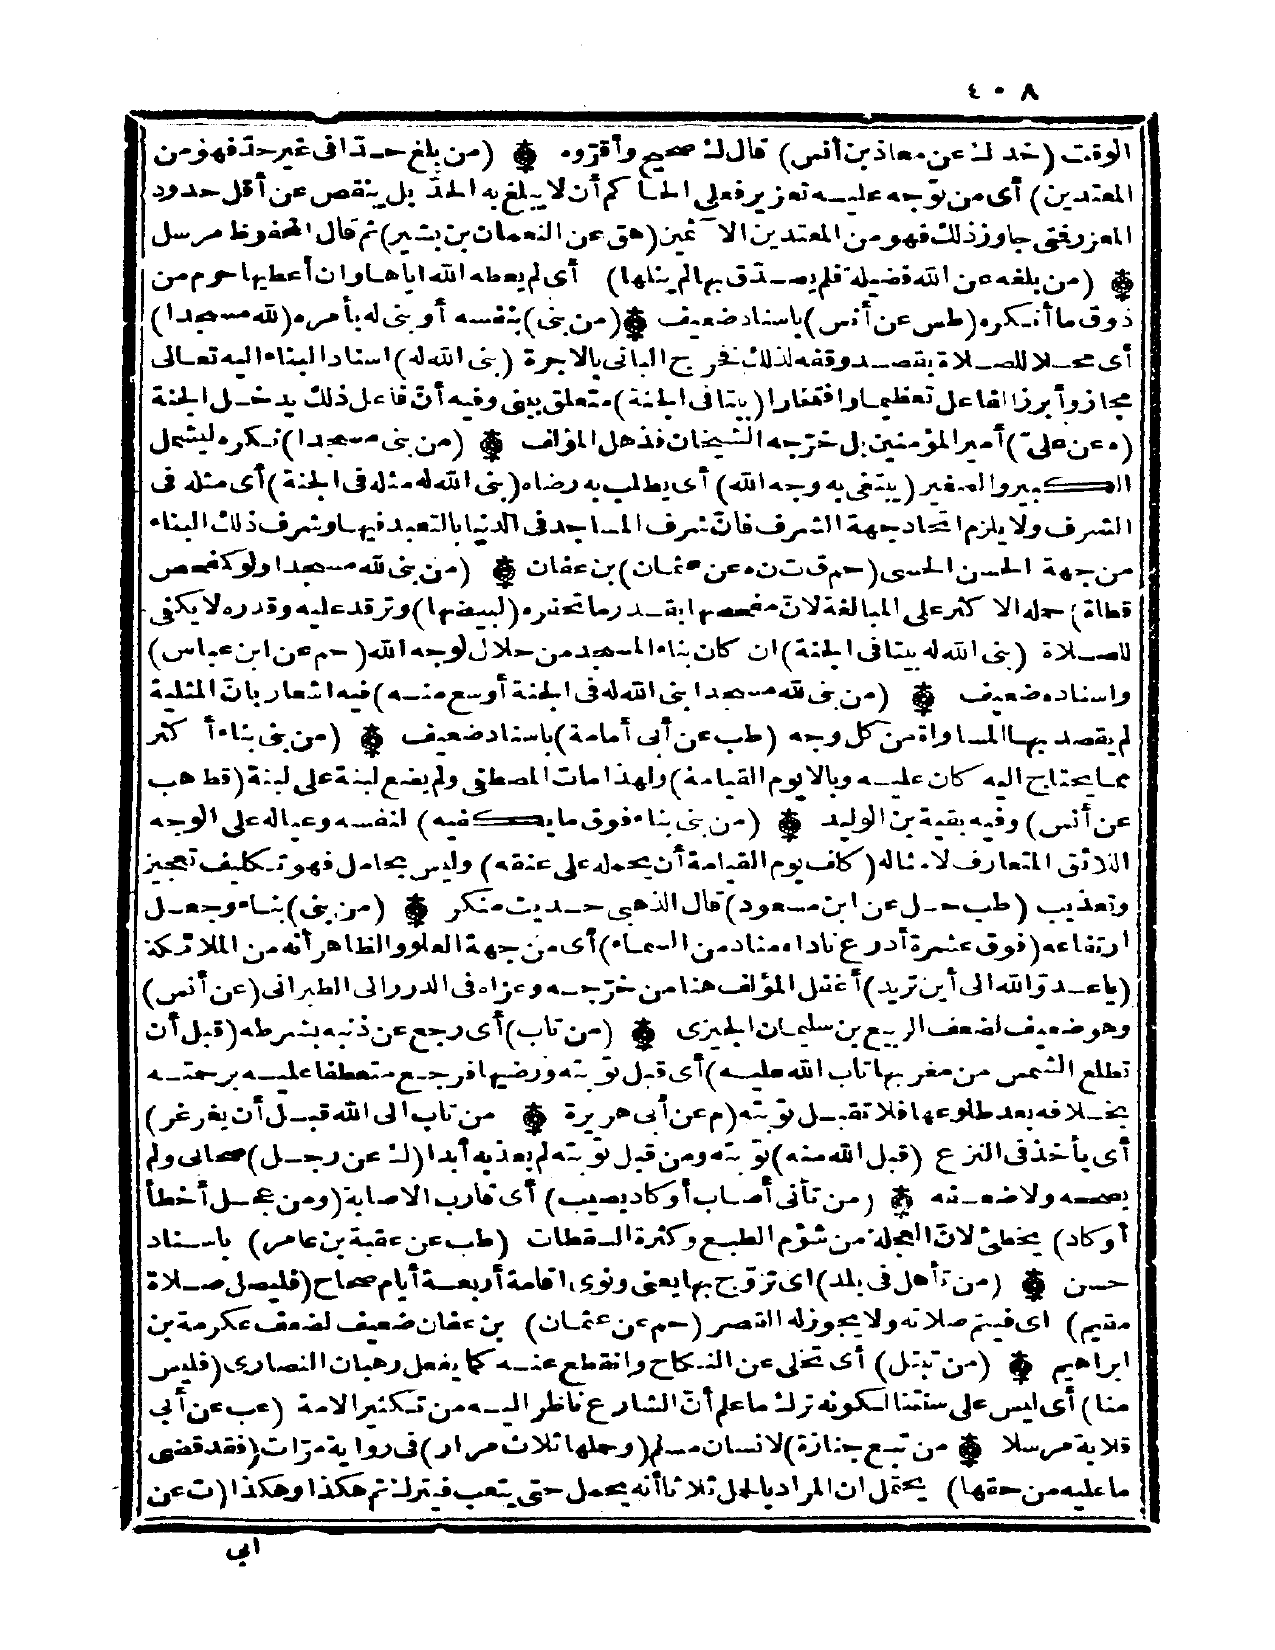 ٤٠٨
الوقت (خد ك عن معاذ بن أنس) قال ك صحيح وأقروه (من بلغ حدا في غير حد فهو من
المعتدين) أى من توجه عليه تعزير فعلى الحاكم أن لا يبلغ به الحد بل ينقص عن أقل حدود
المعزر فتى جاوز ذلك فهو من المعتدين الآثمين (هق عن النعمان بن بشير) ثم قال المحفوظ مرسل
(من بلغه عن الله فضيلة فلم يصدق بها لم ينلها) أى لم يعطه الله اياها وان أعطيها حرم من
ذوق ما أنكره (طس عن أنس) باسناد ضعيف (من بنى) بنفسه أو بنى له بأمره (لله مسجدا)
أى محلا للصلاة بقصد وقفه لذلك فخرج البانى بالاجرة (بنى الله له) اسناد البناء اليه تعالى
مجاز وأبرز الفاعل تعظيما وافتخارا (بيتا فى الجنة) متعلق ببنى وفيه أن فاعل ذلك يدخل الجنة
(ه عن على) أمير المؤمنين بل خرجه الشيخان فذهل المؤلف (من بنى مسجدا) نكره ليشمل
الكبير والصغير (يبتغى به وجه الله) أى يطلب به رضاه (بنى الله له مثله فى الجنة) أى مثله فى
الشرف ولا يلزم اتحاد جهة الشرف فان شرف المساجد فى الدنيا بالتعبد فيها وشرف ذلك البناء
من جهة الحسن الحسى (حم ق ت ن ه عن عثمان) بن عفان (من بنى لله مسجدا ولو كمفحص
قطاة) حمله الاكثر على المبالغة لان مفحصها بقدر ما تحفره (لبيضها) وترقد عليه وقدره لا يكفى
للصلاة (بنى الله له بيتا فى الجنة) ان كان بناء المسجد من حلال لوجه الله (حم عن ابن عباس)
واسناده ضعيف (من بنى لله مسجدا بنى الله له فى الجنة أوسع منه) فيه اشعار بان المثلية
لم يقصد بها المساواة من كل وجه (طب عن أبى أمامة) باسناد ضعيف (من بنى بناء أكثر
مما يحتاج اليه كان عليه وبالا يوم القيامة) ولهذا مات المصطفى ولم يضع لبنة على لبنة (قط هب
عن أنس) وفيه بقية بن الوليد (من بنى بناء فوق ما يكفيه) لنفسه وعياله على الوجه
اللائق المتعارف لامثاله (كلف يوم القيامة أن يحمله على عنقه) وليس بحامل فهو تكليف تعجيز
وتعذيب (طب حل عن ابن مسعود) قال الذهبى حديث منكر (من بنى) بناء وجعل
ارتفاعه (فوق عشرة أذرع ناداه مناد من السماء) أى من جهة العلو والظاهر أنه من الملائكة
(يا عدو الله الى أين تريد) أغفل المؤلف هنا من خرجه وعزاه فى الدرر الى الطبرانى (عن أنس)
وهو ضعيف لضعف الربيع بن سليمان الجيزى (من تاب) أى رجع عن ذنبه بشرطه (قبل أن
تطلع الشمس من مغربها تاب الله عليه) أى قبل توبته ورضيها فرجع متعطفا عليه برحمته
بخلافه بعد طلوعها فلا تقبل توبته (م عن أبى هريرة من تاب الى الله قبل أن يغرغر)
أى يأخذ فى النزع (قبل الله منه) توبته ومن قبل توبته لم يعذبه أبدا (ك عن رجل) صحابى ولم
يصححه ولا ضعفه (من تأنى أصاب أو كاد يصيب) أى قارب الاصابة (ومن عجل أخطأ
أو كاد) يخطئ لان العجلة من شؤم الطبع وكثرة السقطات (طب عن عقبة بن عامر) باسناد
حسن (من تأهل فى بلد) اى تزوج بها يعنى ونوى اقامة أربعة أيام صحاح (فليصل صلاة
مقيم) اى فيتم صلاته ولا يجوز له القصر (حم عن عثمان) بن عفان ضعيف لضعف عكرمة بن
ابراهيم (من تبتل) أى تخلى عن النكاح وانقطع عنه كما يفعل رهبان النصارى (فليس
منا) أى ليس على سنتنا لكونه ترك ما علم أن الشارع ناظر اليه من تكثير الامة (عب عن أبى
قلابة مرسلا من تبع جنازة) لانسان مسلم (وحملها ثلاث مرار) فى رواية مرات (فقد قضى
ما عليه من حقها) يحتمل ان المراد بالحمل ثلاثا أنه يحمل حتى يتعب فيترك ثم هكذا وهكذا (ت عن
ابى